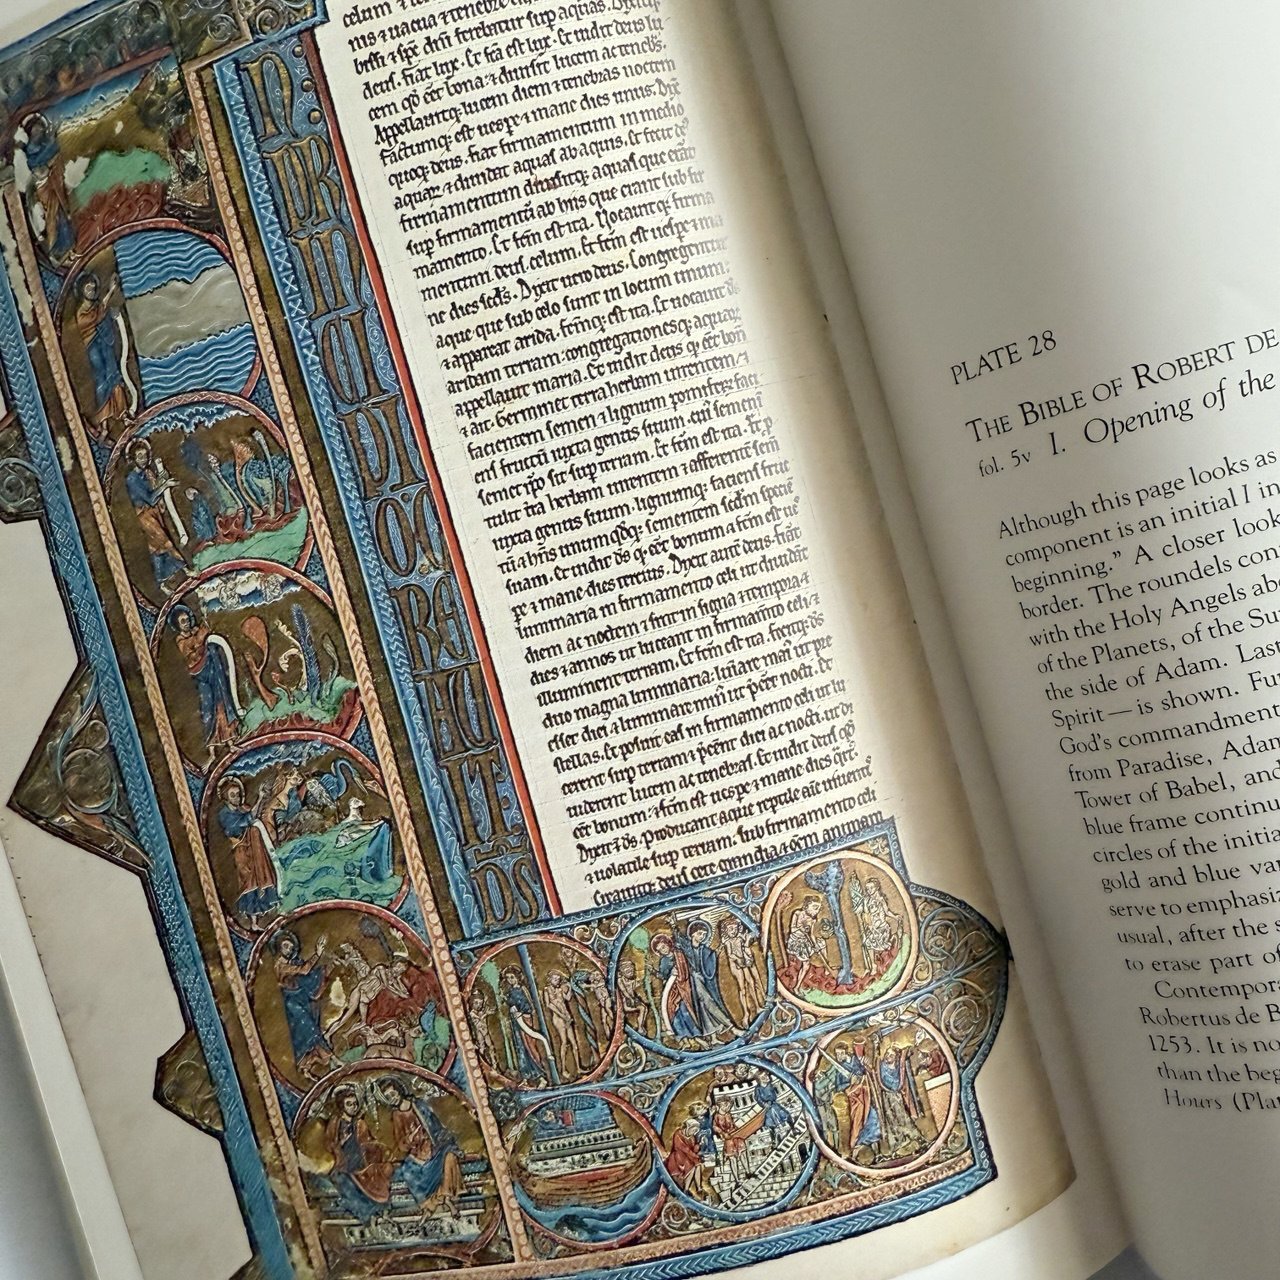 N
PR
IN
CI
PI
O C
RE
AU
IT
DS
deus. fiat lux. Et fca est lux. Et vidit deus lu
cem qd eet bona: ⁊ divisit lucem ac tenebs.
Appellavitq; lucem diem ⁊ tenebras noctem
factumq; est vespe ⁊ mane dies unus. Dix
quoq; deus. fiat firmamentum in medio
aquaꝝ ⁊ dividat aquas ab aquis. Et fecit ds
firmamentum divisitq; aquas que erant
sup firmamentū ab hiis que erant sub fir
mamento. Et fcm est ita. Vocavitq; firma
mentum deus celum. Et fcm est vespe ⁊ ma
ne dies scds. Dixit vero deus. Congregentur
aque que sub celo sunt in locum unum:
⁊ appareat arida. fcmq; est ita. Et vocavit ds
aridam terram: congregationesq; aquarum
appellavit maria. Et vidit deus q eet bon
⁊ ait. Germinet terra herbam virentem ⁊
facientem semen ⁊ lignum pomifeꝝ faci
ens fructū iuxta genus suum. cui semen
semet ipo sit sup terram. Et fcm est ita. Et p
tulit tra herbam virentem ⁊ afferente sem
iuxta genus suum. lignumq; faciens fruc
suam. Et vidit ds q eet bonum ⁊ fcm est ve
pe ⁊ mane dies tercius. Dixit aut deus. fiāt
luminaria in firmamento celi ut dividāt
diem ac noctem ⁊ sint in signa ⁊ tempora ⁊
dies ⁊ annos ut luceant in firmamto celi ⁊
illuminent terram. Et fcm est ita. fecitq; ds
duo magna luminaria: luīare mai ut pre
esset diei ⁊ luminare min ut peet nocti. Et
stellas. Et posuit eas in firmamento celi ut lu
cerent sup terram ⁊ peent diei ac nocti. ut di
viderent lucem ac tenebras. Et vidit deus qd
eet bonum: ⁊ fcm est vespe ⁊ mane dies qrt.
Dixit ⁊ ds. Producant aque reptile aīe viventi
⁊ volatile sup terram. sub firmamento celi
Creavitq; deus cete grandia ⁊ oem animam
PLATE 28
THE BIBLE OF ROBERT DE
fol. 5v I. Opening of the
Although this page looks as
component is an initial I in
beginning.” A closer look
border. The roundels con
with the Holy Angels ab
of the Planets, of the Su
the side of Adam. Last
Spirit—is shown. Fur
God's commandment
from Paradise, Adam
Tower of Babel, and
blue frame continu
circles of the initia
gold and blue var
serve to emphasiz
usual, after the s
to erase part of
Contempora
Robertus de B
1253. It is no
than the beg
Hours (Plat